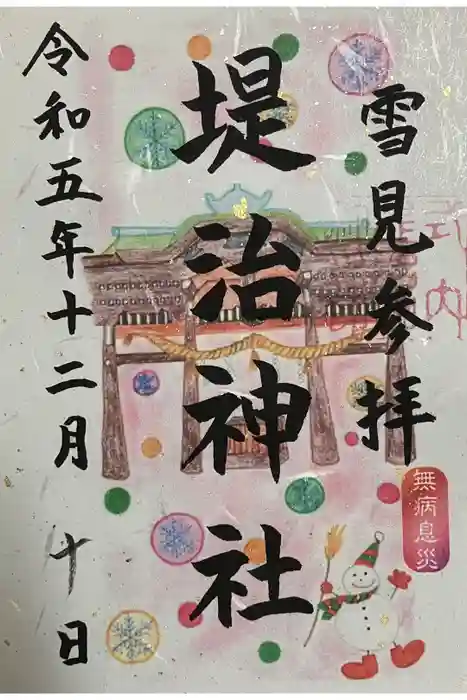 雪見参拝
堤治神社
令和五年十二月十日
無病息災
式内